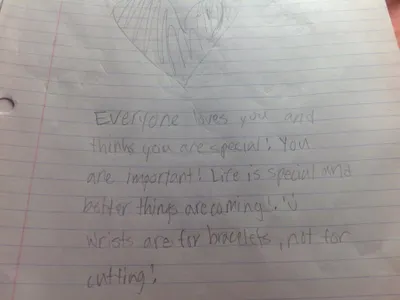 Everyone loves you and
thinks you are special! You
are important! Life is special and
better things are coming! :)
Wrists are for bracelets, not for
cutting!